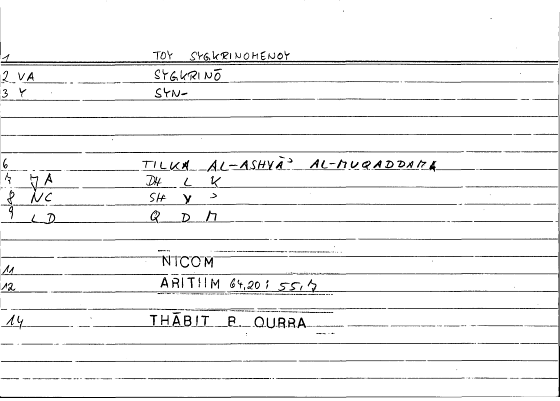 1 TOY SYGKRINOMENOY
2 VA SYGKRINŌ
3 Y SYN-
6 TILKA AL-ASHYĀʾ AL-MUQADDAMA
7 MA DH L K
8 NC SH Y ʾ
9 LD Q D M
11 NICOM
12 ARITIIM 64,20; 55,7
14 THĀBIT B. QURRA